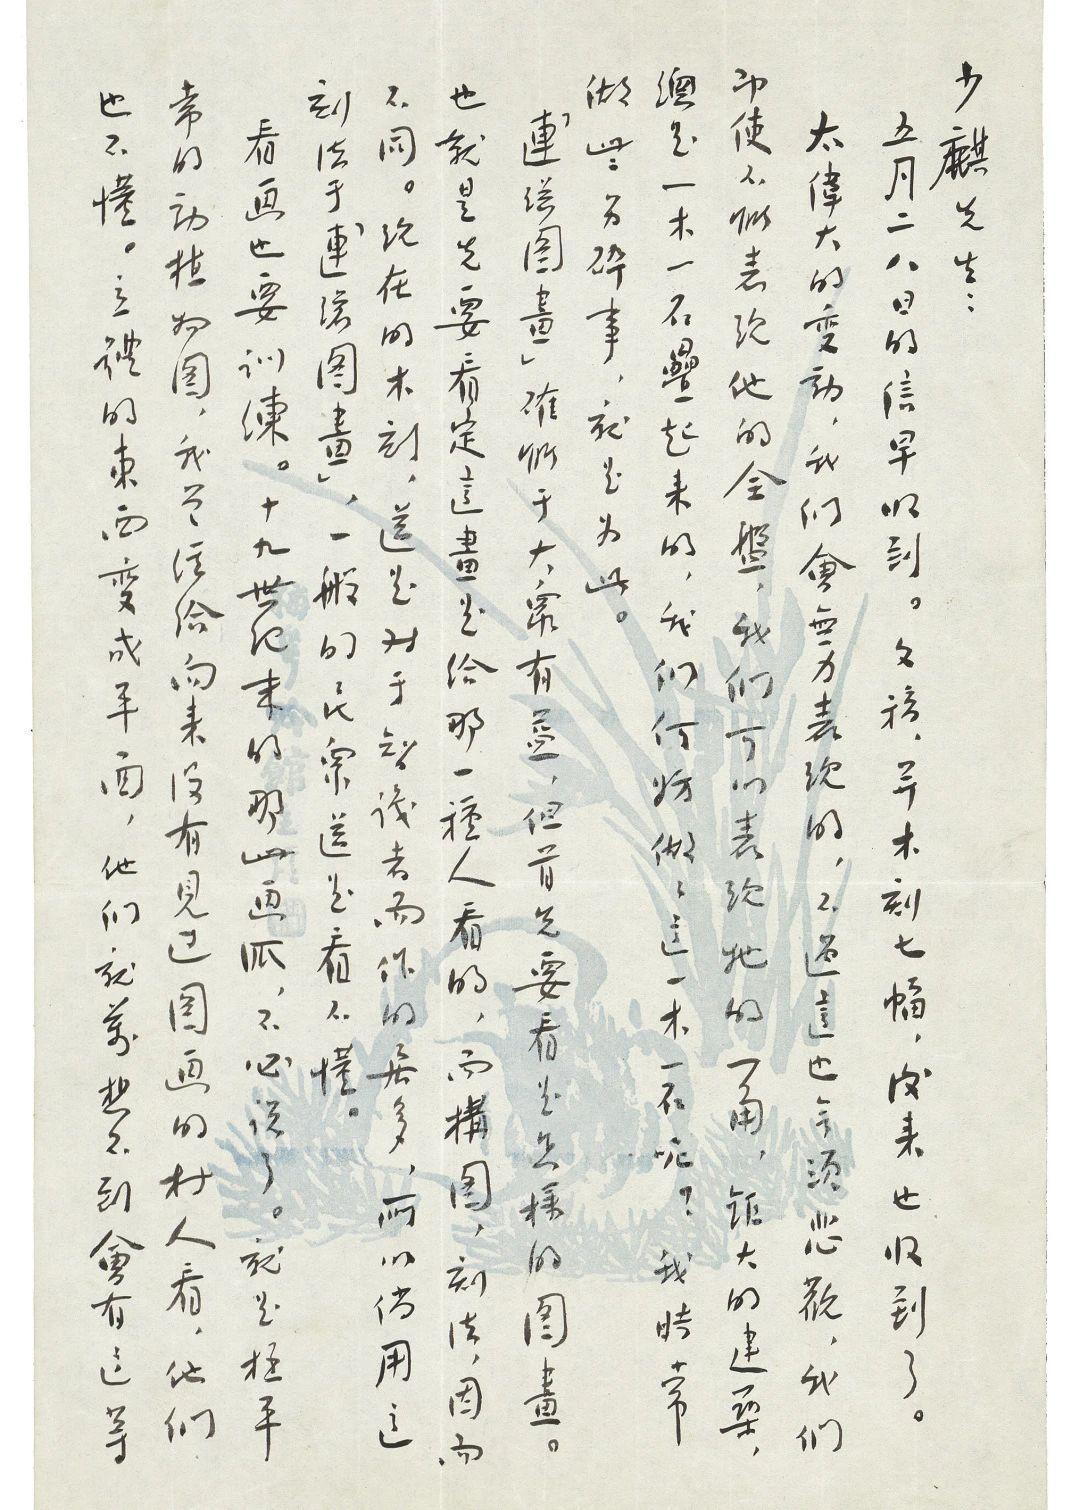 少麒先生：
五月二八日的信早收到。文稿，并木刻七幅，後来也收到了。
太偉大的变動，我们會無力表现的，不過這也無須悲觀，我们
即使不能表现他的全盤，我们可以表现牠的一角，鉅大的建築，
總是一木一石疊起来的，我们何妨做做這一木一石呢？我時常
做些另碎事，就是为此。
「連環图畫」確能于大衆有益，但首先要看是怎樣的图畫。
也就是先要看定這畫是给那一種人看的，而構图，刻法，因而
不同。现在的木刻，還是对于智識者而作的居多，所以倘用这
刻法于「連環图畫」，一般的民衆還是看不懂。
看画也要训練。十九世纪末的那些画派，不必说了。就是極平
常的動植物图，我曾经给向来没有見过图画的村人看，他们
也不懂。立體的東西变成平面，他们就萬想不到會有这等